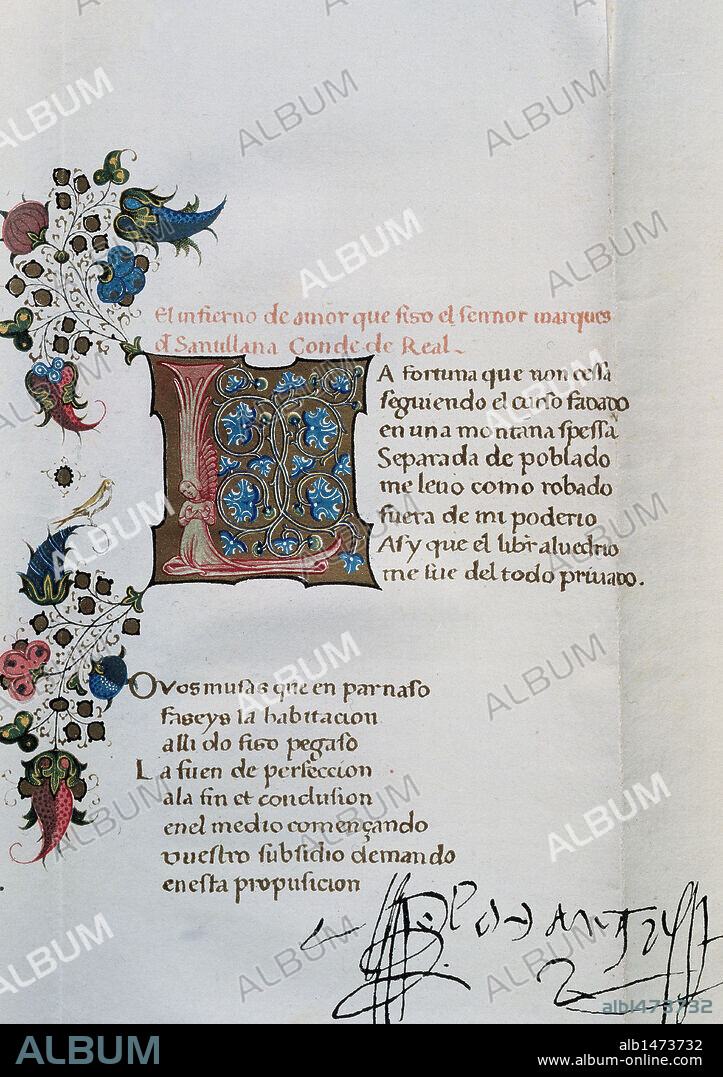 El infierno de amor que fiso el sennor marques
de Santillana Conde de Real
LA fortuna que non cessa
seguiendo el curso fadado
en una montana spessa
Separada de poblado
me leuo como robado
fuera de mi poderio
Asy que el libr aluedrio
me fue del todo priuado.
O vos musas que en parnaso
faseys la habitacion
alli do fiso pegaso
La fuen de perfeccion
ala fin et conclusion
enel medio començando
vuestro subsidio demando
enesta proposicion
ALBUM
alb1473732
ALBUM
alb1473732
www.album-online.com